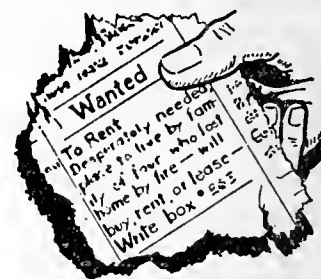 Wanted
To Rent
Desperately needed
place to live by fam-
ily of four who lost
home by fire — will
buy, rent, or lease —
Write box